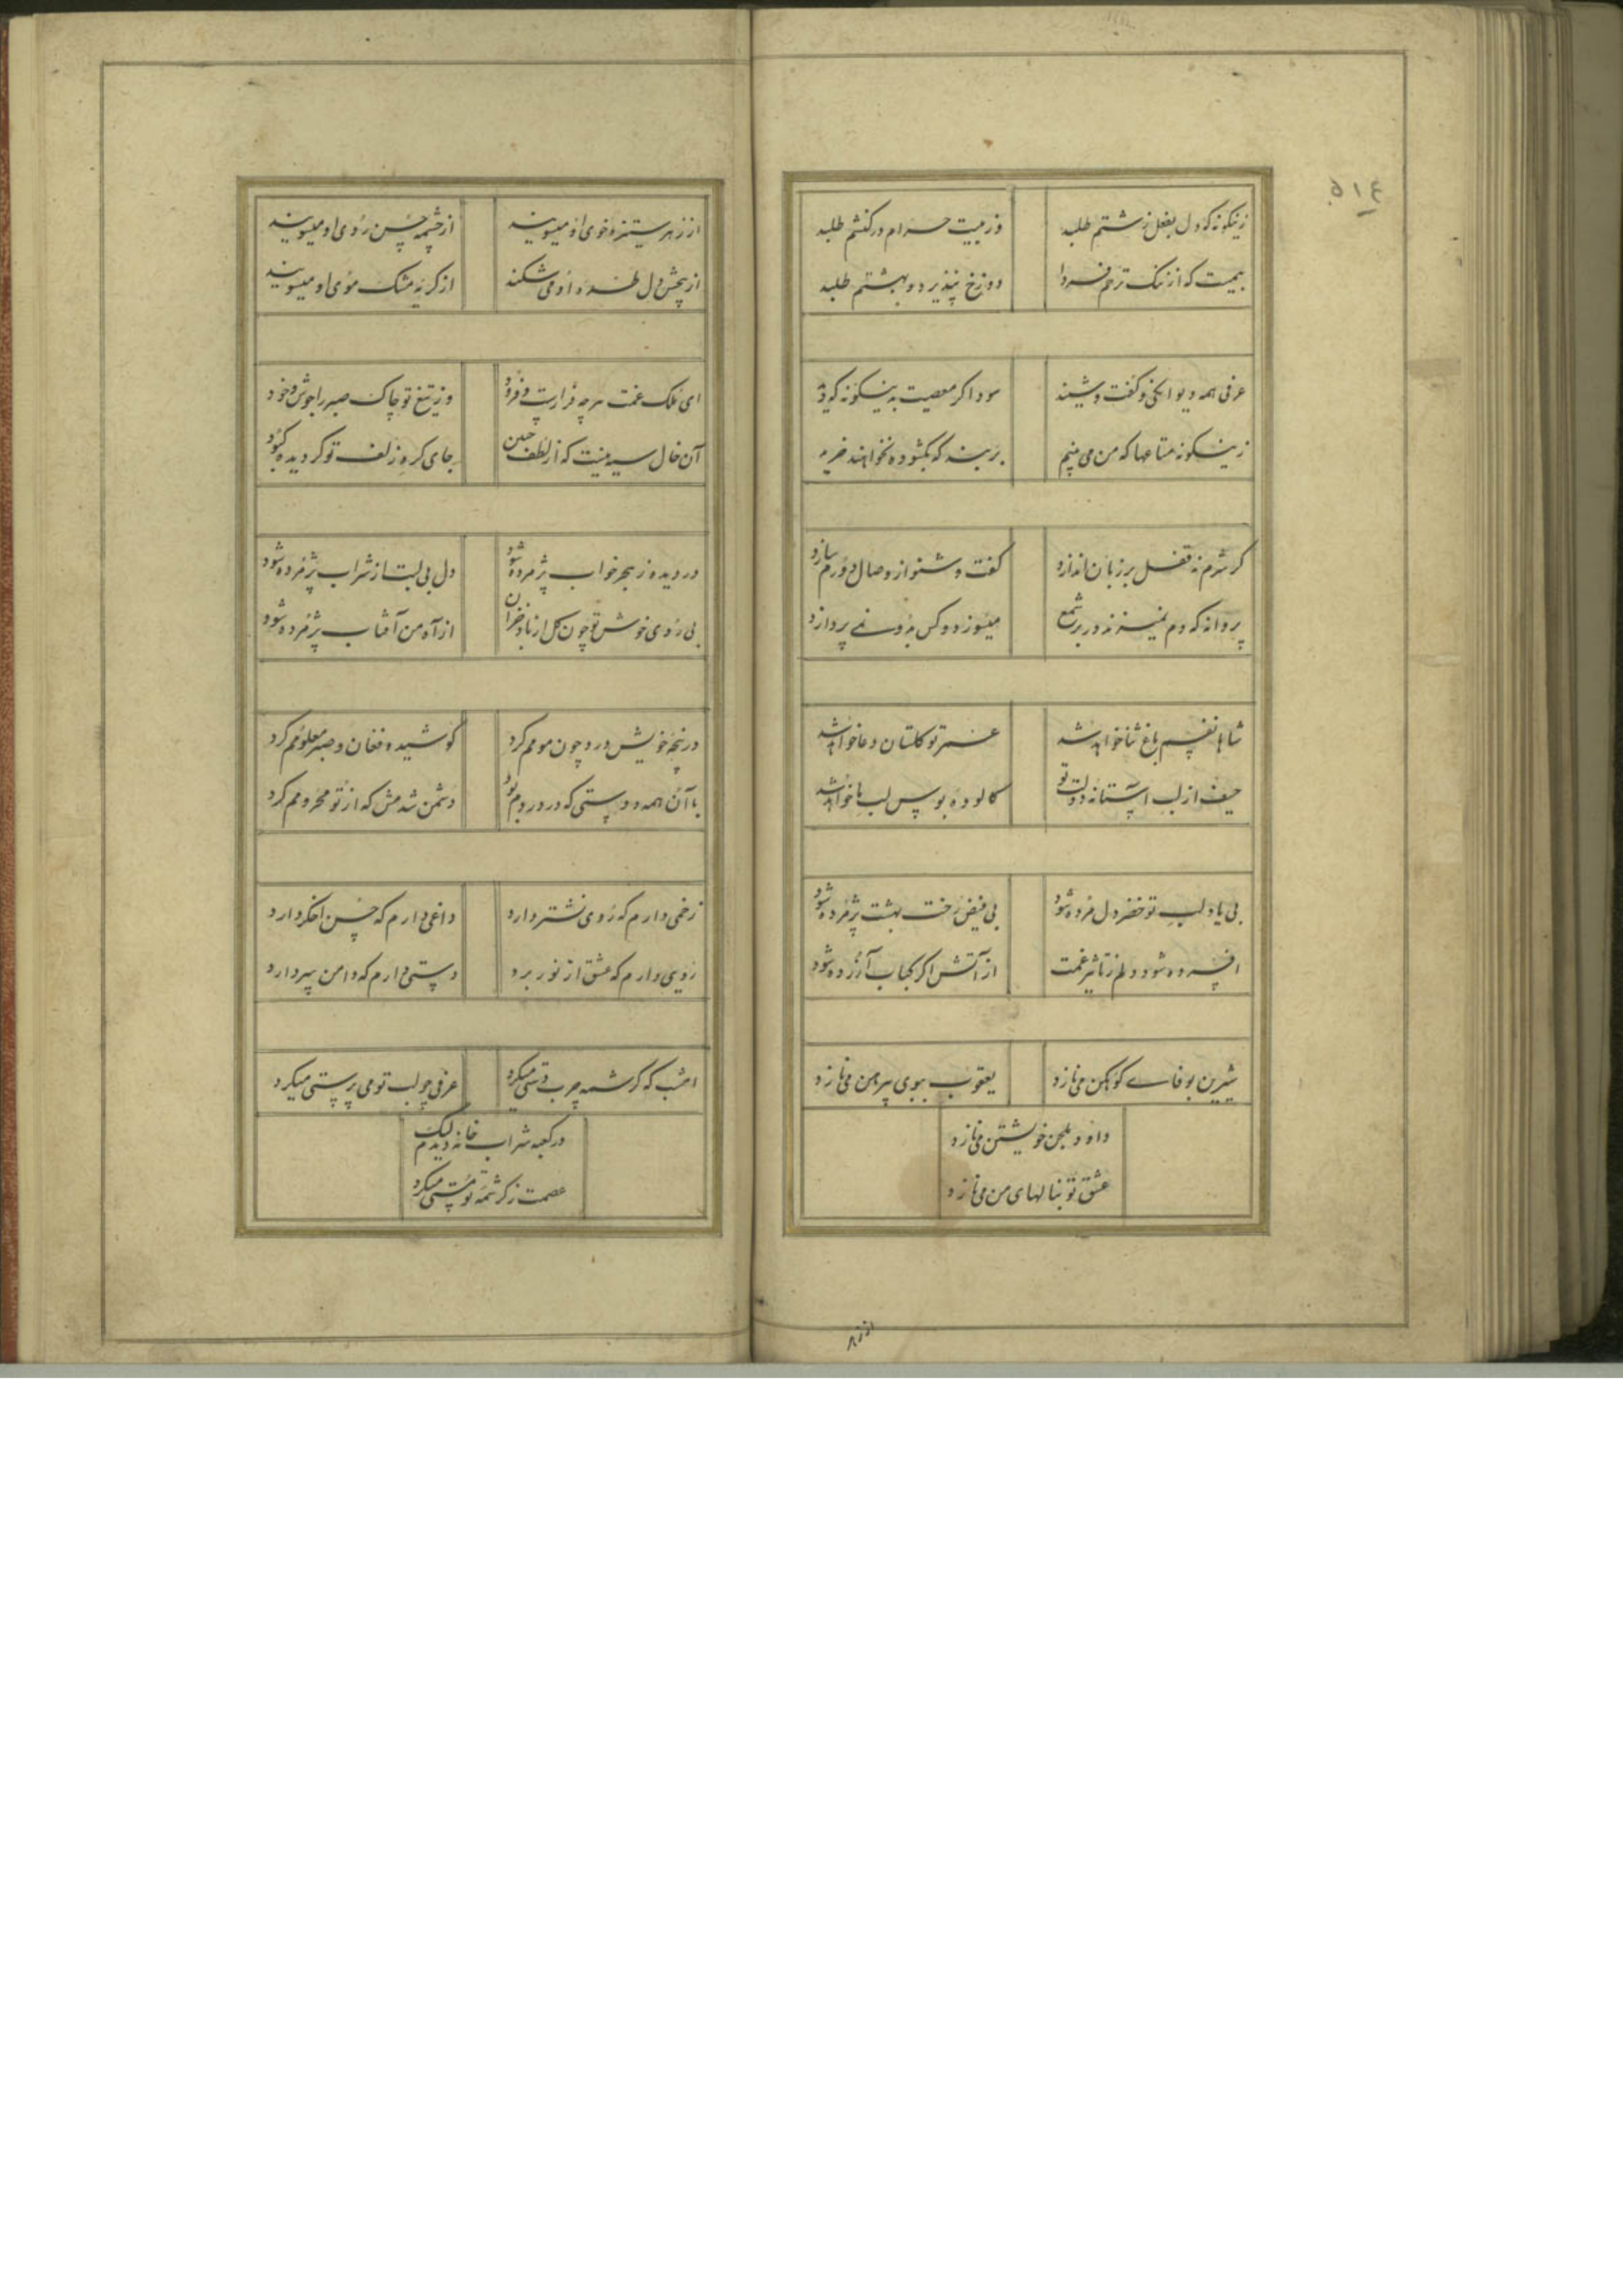 ۵۱۴
زینگونه که دل بفعل زشتم طلبد
وز بیت حرام در کنشتم طلبد
بیمست که از ننک ترحم فردا
دوزخ نپذیرد و بهشتم طلبد
عرفی همه دیوانگی و گفت و شنید
سوداگر معصیت بدینگونه که دید
زینگونه متاعها که من می بینم
بربند که نگشوده نخواهند خرید
گر شرم نه قفل بر زبان اندازد
گفت و شنو از وصال دورم سازد
پروانه که دم نمیزند در بر شمع
میسوزد و کس بدو نمی پردازد
شاها نفسم باغ ثنا خواهد شد
عمر تو گلستان دعا خواهد شد
حیف از لب آستانه دولت تو
کالوده بوس لب ما خواهد شد
بی یاد لب تو خضر دل مرده شود
بی فیض رخت بهشت پژمرده شود
افسرده شود دلم ز تاثیر غمت
از آتش اگر کباب آزرده شود
شیرین بوفای کوهکن می نازد
یعقوب ببوی پیرهن می نازد
داود بلحن خویشتن می نازد
عشق تو بنالهای من می نازد
از زهر
از زهر ستیزه خوی او میسوزند
از چشمه حسن روی او میسوزند
از پیچش دل طره او می شکند
از گریه مشک موی او میسوزند
ای ملک غمت هر چه فرازست و فرود
وز تیغ تو چاک صبر را جوشن و خود
آن خال سیه نیست که از لطف جبین
جای گره زلف تو گردیده کبود
در دیده ز هجر خواب پژمرده شود
دل بی لبت از شراب پژمرده شود
بی روی خوش تو چون گل از باد خزان
از آه من آفتاب پژمرده شود
در پنجه خویش درد چون مومم کرد
کوشید و فغان و صبر معلومم کرد
با آن همه دوستی که در دردم بود
دشمن شدمش که از تو محرومم کرد
زخمی دارم که روی نشتر دارد
داغی دارم که حسن اخگر دارد
روی دارم که عشق از نور برد
دستی دارم که دامن سر دارد
امشب که کرشمه چرب دستی میکرد
عرفی چو لب تو می پرستی میکرد
در کعبه شراب خانه دیدم لیک
عصمت ز کرشمه تو مستی میکرد